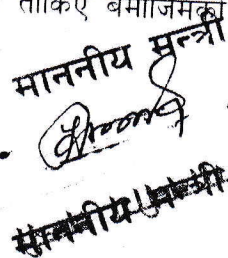 तोकिए बमोजिमको
माननीय मन्त्री
माननीय मन्त्री